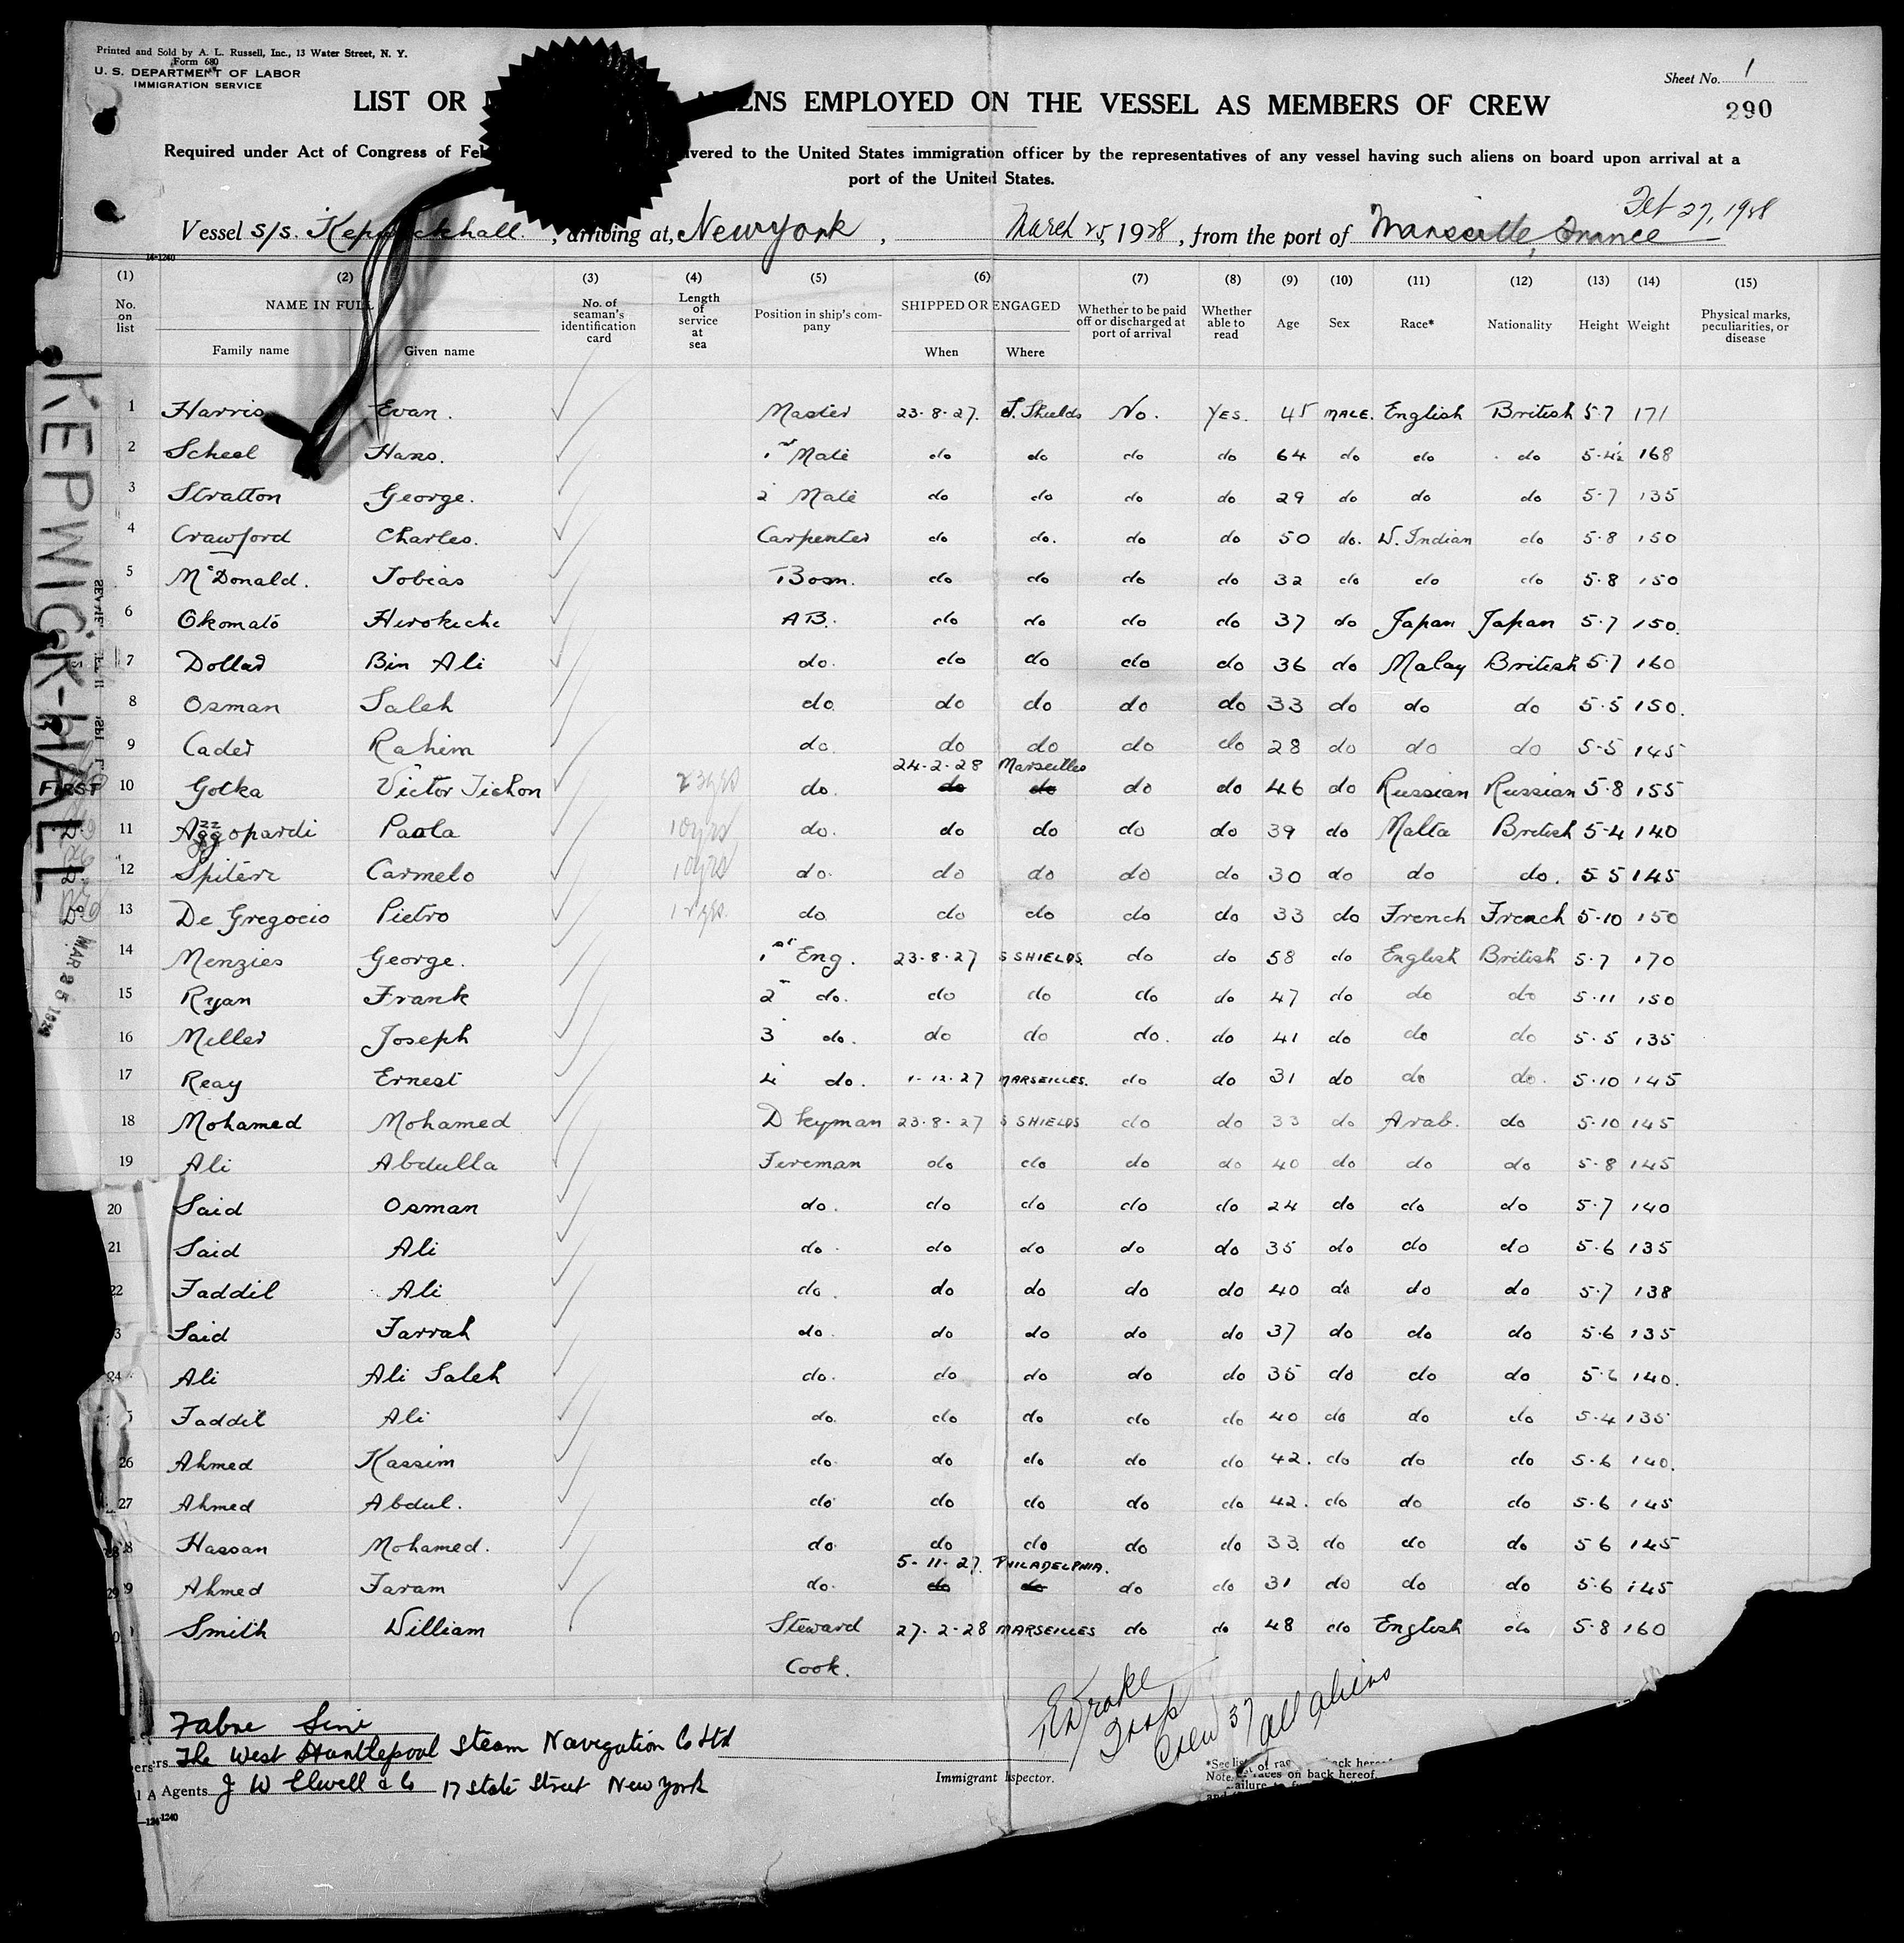 Printed and Sold by A. L. Russell, Inc., 13 Water Street, N. Y.
Form 680
U. S. DEPARTMENT OF LABOR
IMMIGRATION SERVICE
Sheet No. 1
290
LIST OR ALIENS EMPLOYED ON THE VESSEL AS MEMBERS OF CREW
Required under Act of Congress of delivered to the United States immigration officer by the representatives of any vessel having such aliens on board upon arrival at a
port of the United States.
Feb 27, 1928
Vessel S/S. Kepwickhall, arriving at, New York, March 25, 1928, from the port of Marseille, France
14-1240
(1) (2) (3) (4) (5) (6) (7) (8) (9) (10) (11) (12) (13) (14) (15)
No. on list NAME IN FULL Family name Given name No. of seaman's identification card Length of service at sea Position in ship's company SHIPPED OR ENGAGED When Where Whether to be paid off or discharged at port of arrival Whether able to read Age Sex Race* Nationality Height Weight Physical marks, peculiarities, or disease
1 Harris Evan. Master 23.8.27. S. Shields No. YES. 45 MALE. English British 5.7 171
2 Scheel Hans. 1st Mate do do do do 64 do do do 5.4½ 168
3 Stratton George. 2 Mate do do do do 29 do do do 5.7 135
4 Crawford Charles. Carpenter do do. do do 50 do. W. Indian do 5.8 150
5 McDonald. Tobias Bosn. do do do do 32 do do do 5.8 150
6 Okomato Hirokichi AB. do do do do 37 do Japan Japan 5.7 150.
7 Dollad Bin Ali do. do do do do 36 do Malay British 5.7 160
8 Osman Saleh do. do do do do 33 do do do 5.5 150.
9 Cader Rahim do. do do do do 28 do do do 5.5 145
24-2-28 Marseilles
10 Golka Victor Tichon 23 yrs do. do do do do 46 do Russian Russian 5.8 155
11 Azzopardi Paola 10 yrs do. do do do do 39 do Malta British 5.4 140
12 Spiteri Carmelo 10 yrs do. do do do do 30 do do do. 5 5 145
13 De Gregocio Pietro do. do do do do 33 do French French 5.10 150
14 Menzies George. 1st Eng. 23.8.27 S SHIELDS. do do 58 do English British 5.7 170
15 Ryan Frank 2 do. do do do do 47 do do do 5.11 150
16 Miller Joseph 3 do. do do do. do 41 do do do 5.5 135
17 Reay Ernest 4 do. 1.12.27 MARSEILLES. do do 31 do do do. 5.10 145
18 Mohamed Mohamed D keyman 23.8.27 S SHIELDS do do 33 do Arab. do 5.10 145
19 Ali Abdulla Fireman do do do do 40 do do do 5.8 145
20 Said Osman do. do do do do 24 do do do 5.7 140
21 Said Ali do. do do do do 35 do do do 5.6 135
22 Faddil Ali do. do do do do 40 do do do 5.7 138
3 Said Farrah do. do do do do 37 do do do 5.6 135
24 Ali Ali Saleh do. do do do do 35 do do do 5.6 140.
5 Faddil Ali do. do do do do 40 do do do 5.4 135
26 Ahmed Kassim do. do do do do 42. do do do 5.6 140.
27 Ahmed Abdul. do. do do do do 42. do do do 5.6 145
28 Hassan Mohamed. do. do do do do 33. do do do 5 6 145
5-11-27. PHILADELPHIA.
29 Ahmed Faram do. do do do do 31 do do do 5.6 145
0 Smith William Steward 27.2.28 MARSEILLES do do 48 do English do 5.8 160
Cook.
Crew 37 all aliens
Fabre Line
The West Hartlepool Steam Navigation Co Ltd
Agents J W Elwell & Co 17 State Street New York
Immigrant Inspector.
1240
KEPWICK-HALL
FIRST
MAR 25 1928